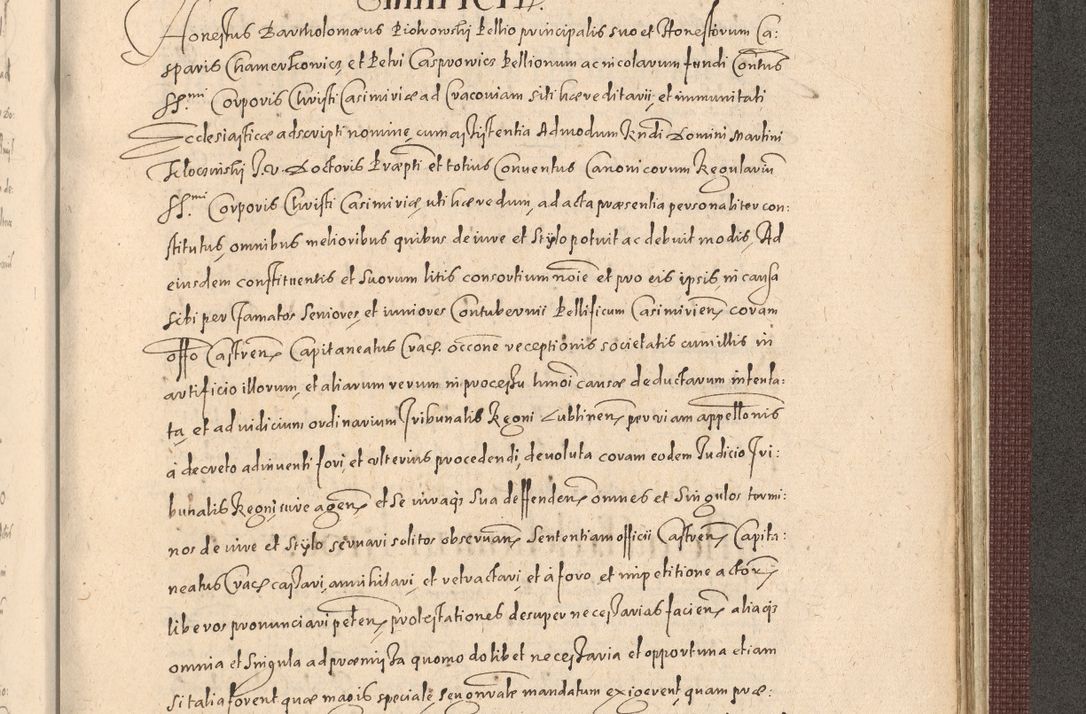 Honestus Bartholomæus Piotrowski Pellio principalis suo et Honestorum Ca:
sparis Chamerkowicz, et Petri Casprowicz Pellionum ac incolarum fundi Contus
SS.mi Corporis Christi Casimiriæ ad Cracoviam siti hæreditarii, et immunitati
Ecclesiasticæ adscripti nomine, cum assistentia Admodum Rndi Domini Martini
Kłoczinski J. V. Doctoris Præpti et totius Conventus Canonicorum Regulariũ
SS.mi Corporis Christi Casimiriæ, uti hæredum, ad acta præsentia personaliter con:
stitutus, omnibus melioribus quibus de iure et Stylo potuit ac debuit modis, Ad
eiusdem constituentis et Suorum litis consortium noĩe et pro eis ipsis, in causa
sibi per famatos Seniores, et iuniores Contubernii Pellificum Casimirien, coram
offo Castren, Capitaneatus Crac. occone receptionis societatis cum illis in
artificio illorum, et aliarum rerum in processu hmoi causæ deductarum intenta:
ta, et ad iudicium ordinarium Tribunalis Regni Lublinen, per viam appellonis
à decreto adinventi fori, et ulterius procedendi, devoluta coram eodem Judicio Tri:
bunalis Regni iure agen, et Se iuraq3 Sua deffenden, omnes et Singulos termi:
nos de iure et Stylo servari solitos observan, Sententiam officii Castren, Capita:
neatus Crac cassari, annihilari, et retractari, et à foro, et impetitione actor,
liberos pronunciari peten, protestationes desuper necessarias facien, aliaq3
omnia et Singula ad præmissa quomodolibet necessaria et opportuna etiam
si talia forent quæ magis speciale, Seu gnrale mandatum exigerent, quam præ: